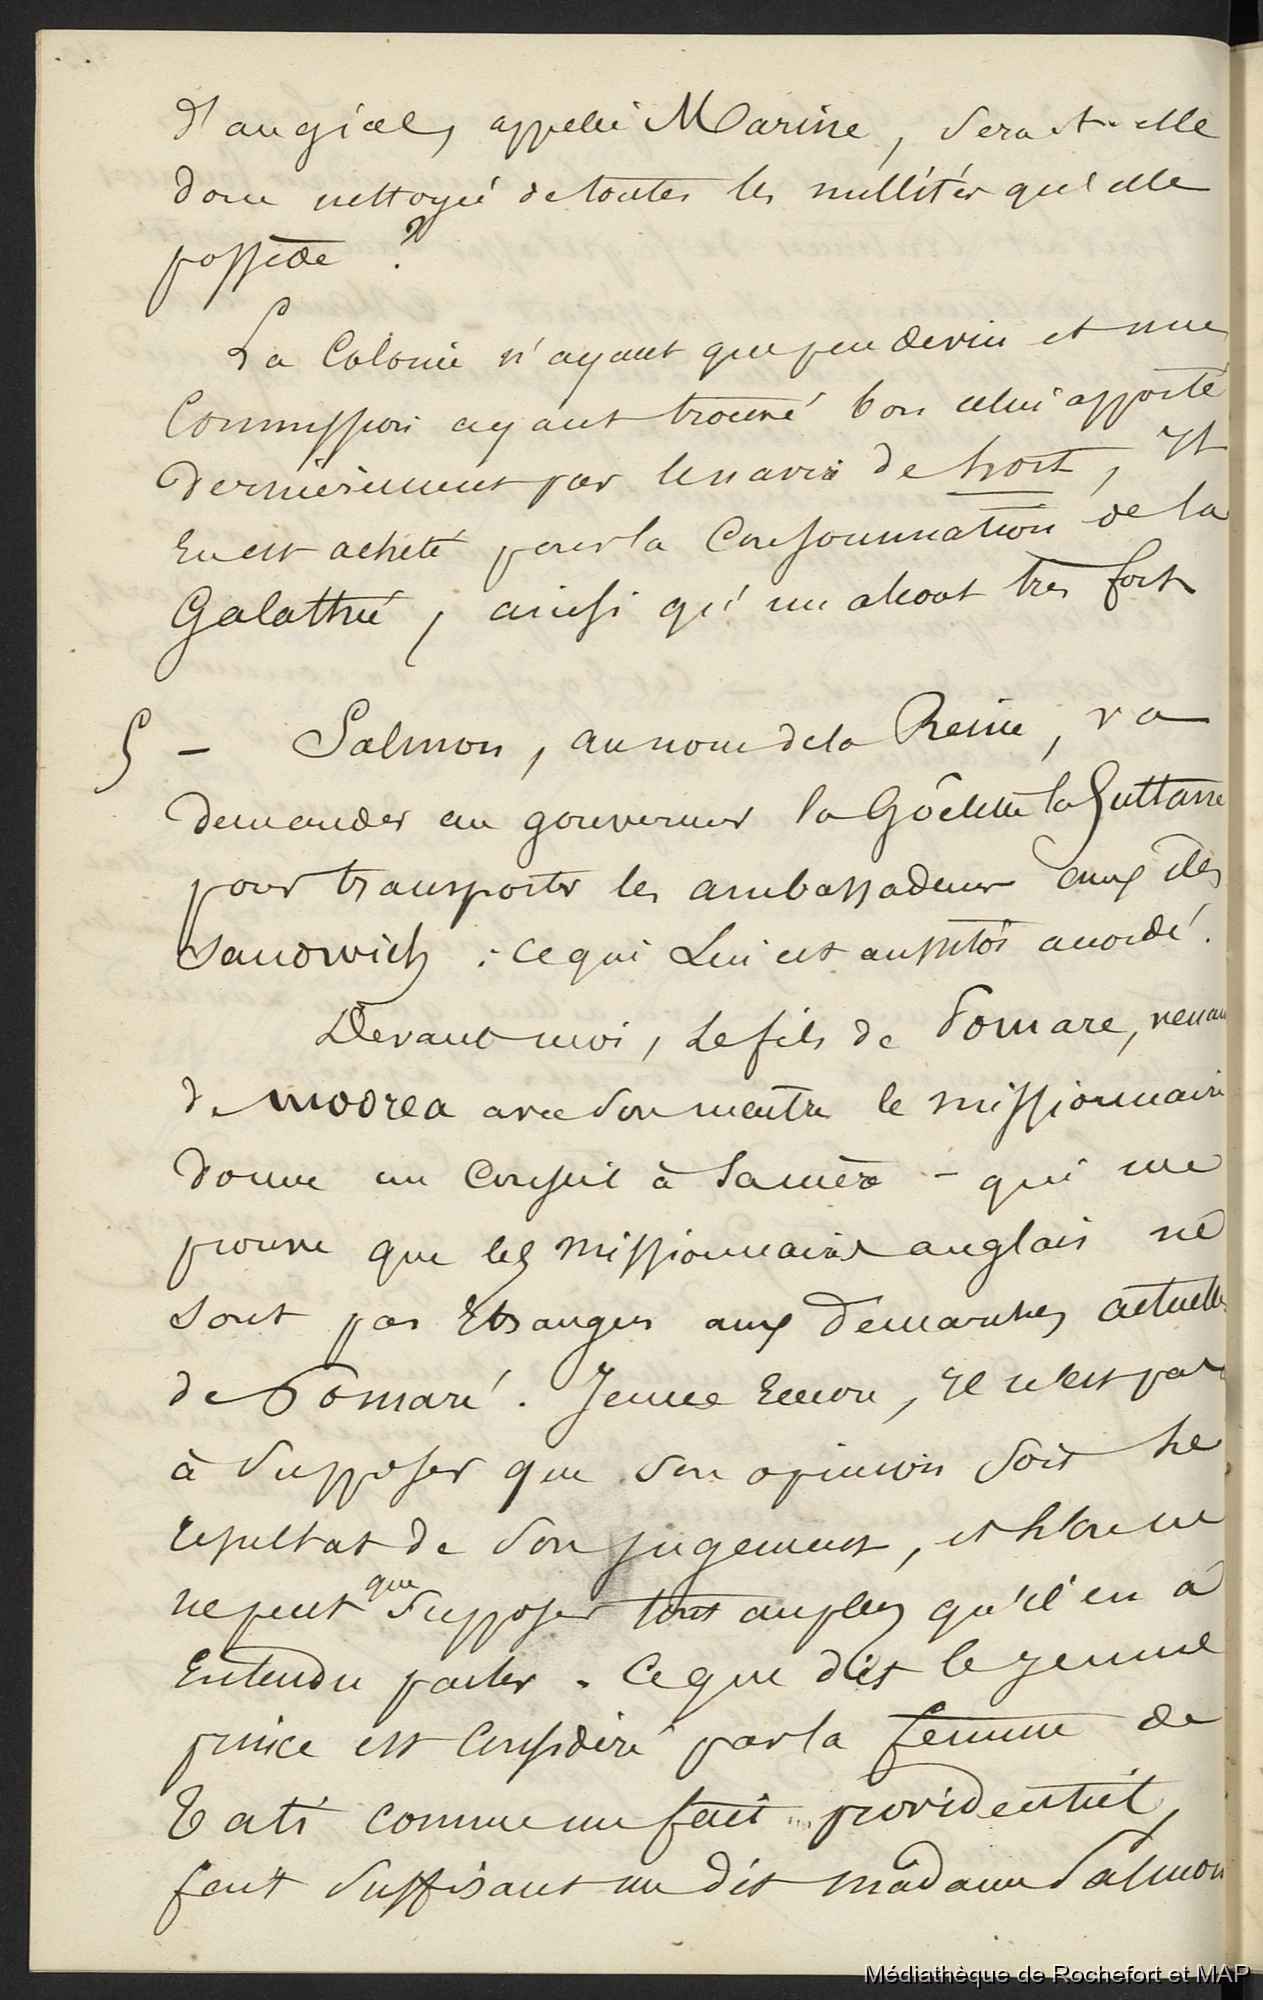 d'augias, appelé Marine, sera-t-elle
donc nettoyé de toutes les nullités qu'elle
possède ?
La Colonie n'ayant que peu de vin et une
Commission ayant trouvé bon celui apporté
dernièrement par le navire de host, Il
En est acheté pour la Consommation de la
Galathée, ainsi qu'un about très fort
5 – Salmon, au nom de la Reine, va
demander au gouverneur la Goëlette la
pour transporter les ambassadeurs aux îles
Sandwich : ce qui Lui est aussitôt accordé.
Devant moi, le fils de Pomare, venant
de moorea avec son mentor le missionnaire
donne un Conseil à sa mère – qui me
prouve que les missionnaires anglais ne
sont pas Etrangers aux démarches actuelles
de Pomaré. Jeune Encore, Il n'est pas
à supposer que son opinion soit le
résultat de son jugement, et l'on
ne peut que supposer tout au plus qu'il en a
Entendu parler. Ce que dit le jeune
prince est Considéré par la femme de
Tati comme un fait providentiel,
fait suffisant me dit madame Salmon
Médiathèque de Rochefort et MAP